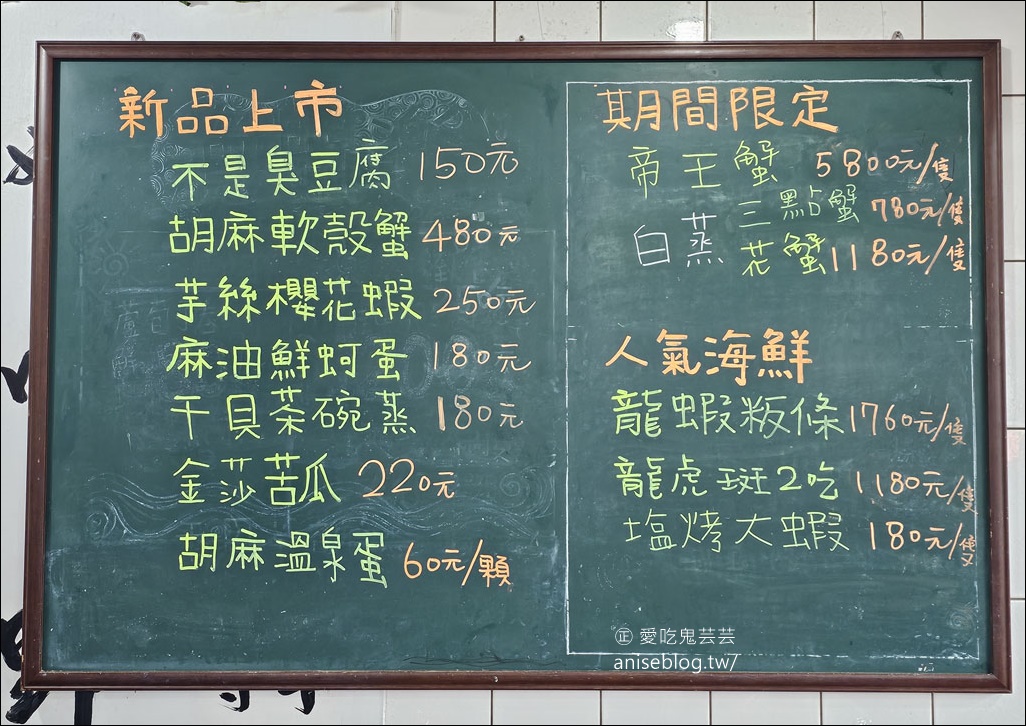 新品上市
不是臭豆腐 150元
胡麻軟殼蟹 480元
芋絲櫻花蝦 250元
麻油鮮蚵蛋 180元
干貝茶碗蒸 180元
金莎苦瓜 220元
胡麻溫泉蛋 60元/顆
期間限定
帝王蟹 5800元/隻
三點蟹 780元/隻
白蒸
花蟹 1180元/隻
人氣海鮮
龍蝦粄條 1760元/隻
龍虎斑2吃 1180元/隻
塩烤大蝦 180元/隻
㊣ 愛吃鬼芸芸
aniseblog.tw/